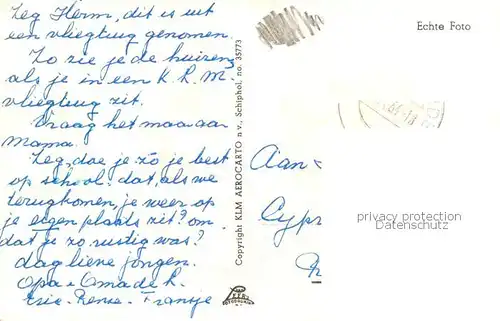 Zeg Herm, dit is uit
een vliegtuig genomen.
Zo zie je de huizen,
als je in een K.L.M.
vliegtuig zit.
Vraag het maar aan
Mama.
Zeg, doe je zo je best
op school? dat, als we
terugkomen, je weer op
je eigen plaats zit? om
dat je zo rustig was?
dag lieve jongen.
Opa + Oma de
Copyright KLM AEROCARTO n.v. Schiphol, no. 35773
Echte Foto
Aan
privacy protection
Datenschutz